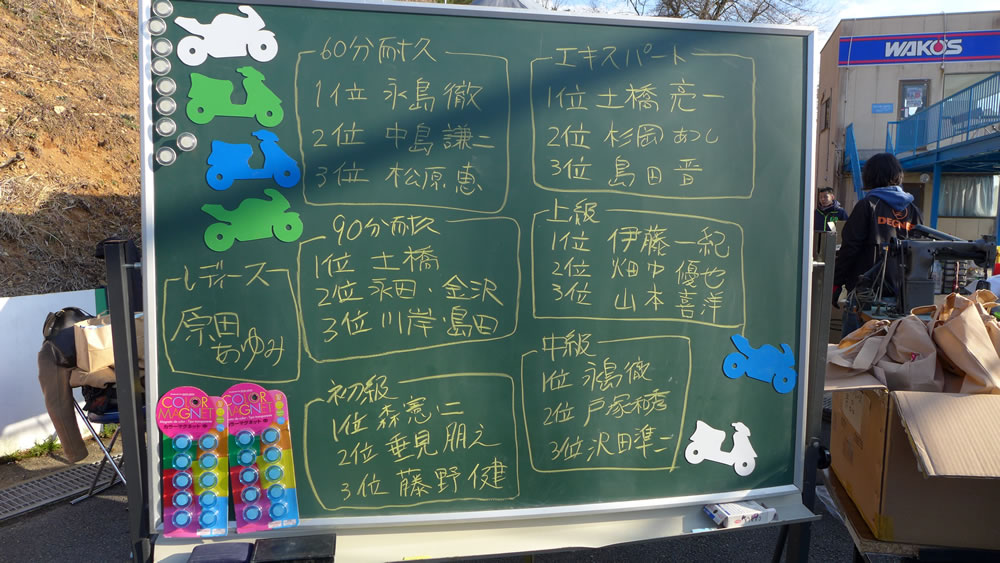 60分耐久
1位 永島 徹
2位 中島 謙二
3位 松原 恵
エキスパート
1位 土橋 亮一
2位 杉岡 あつし
3位 島田 晋
90分耐久
1位 土橋
2位 永田・金沢
3位 川岸・島田
上級
1位 伊藤 一紀
2位 畑中 優也
3位 山本 喜洋
レディース
原田
あゆみ
初級
1位 森 憲二
2位 垂見 朋之
3位 藤野 健
中級
1位 永島 徹
2位 戸塚 和秀
3位 沢田 準二
WAKO'S
COLOR
MAGNET
カラーマグネット
COLOR
MAGNET
カラーマグネット